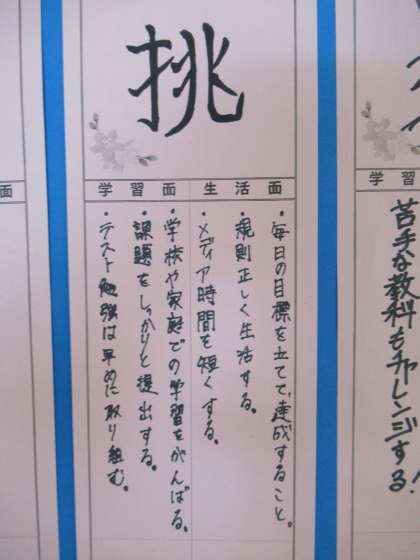 挑
生活面
・毎日の目標を立てて、達成すること。
・規則正しく生活する。
・メディア時間を短くする。
学習面
・学校や家庭での学習をがんばる。
・課題をしっかりと提出する。
・テスト勉強は早めに取り組む。
学習
苦手な教科もチャレンジする!
面